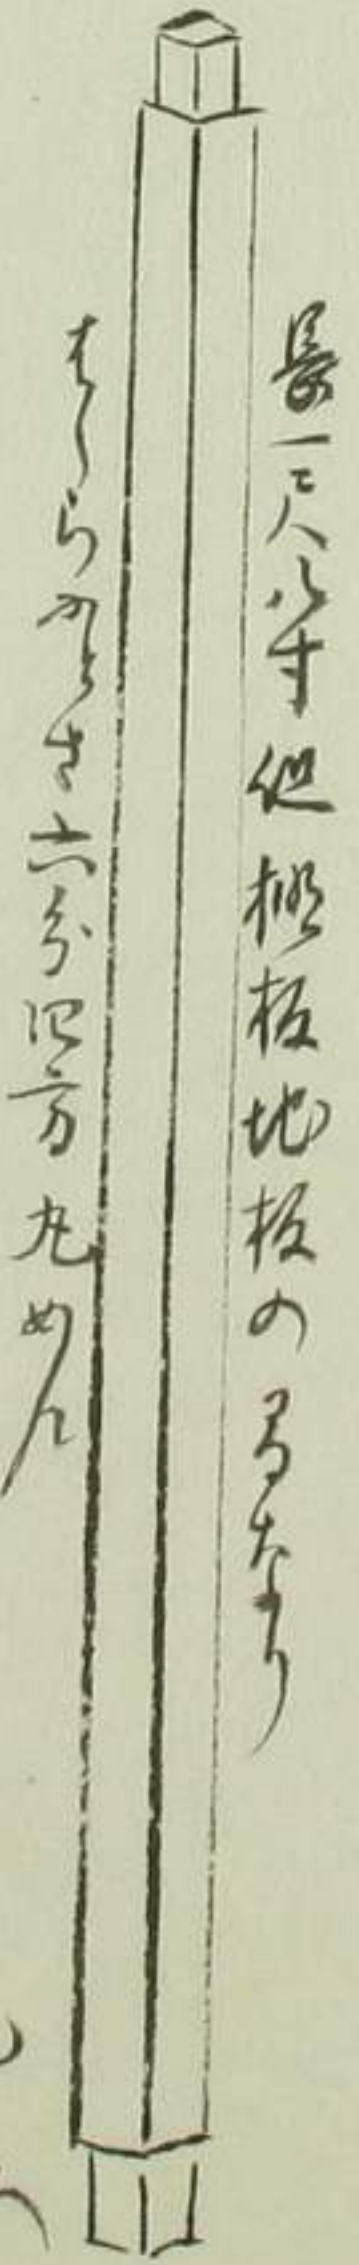 長一尺八寸但棚板地板の間なり
はしらふとさ六分四方丸めん